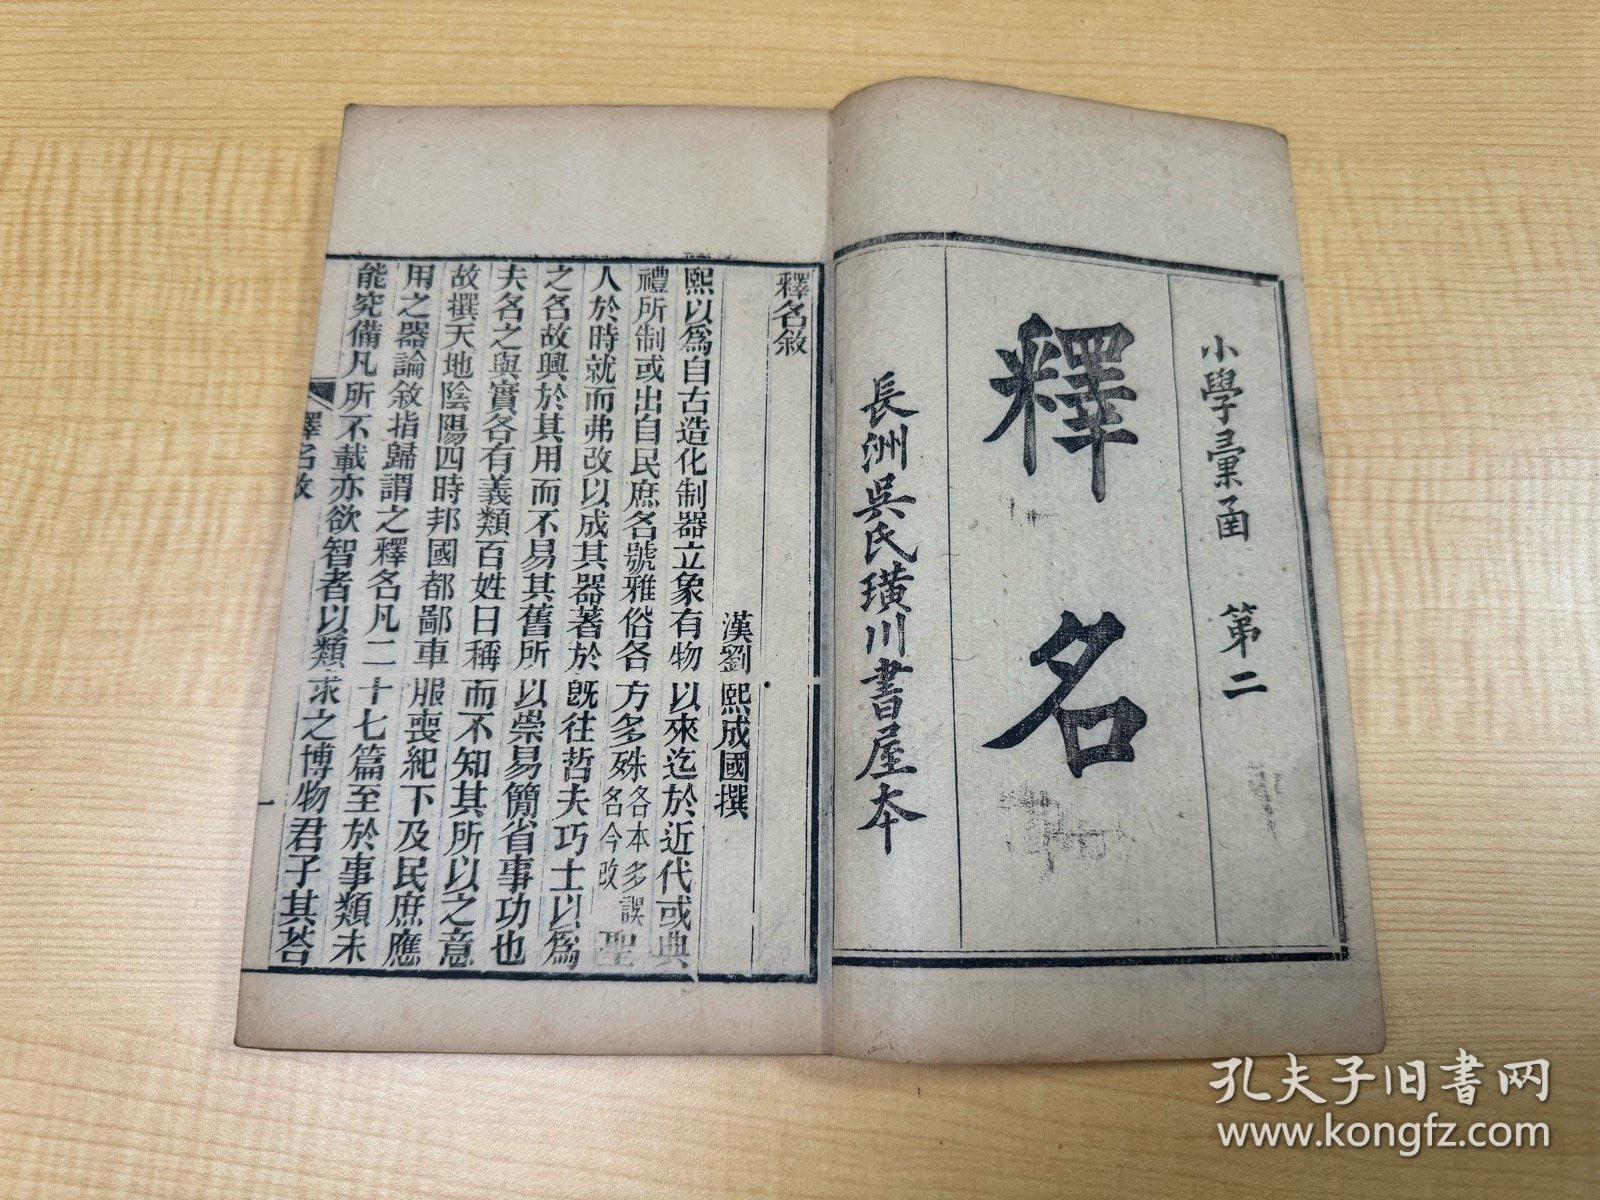 小學彙函 第二
釋名
長洲吳氏璜川書屋本
釋名敘
漢劉熙成國撰
熙以為自古造化制器立象有物以來迄於近代或典
禮所制或出自民庶名號雅俗各方多殊各本多誤名今改聖
人於時就而弗改以成其器著於既往哲夫巧士以為
之名故興於其用而不易其舊所以崇易簡省事功也
夫名之與實各有義類百姓日稱而不知其所以之意
故撰天地陰陽四時邦國都鄙車服喪紀下及民庶應
用之器論敘指歸謂之釋名凡二十七篇至於事類未
能究備凡所不載亦欲智者以類求之博物君子其荅
釋名敘
一
孔夫子旧书网
www.kongfz.com